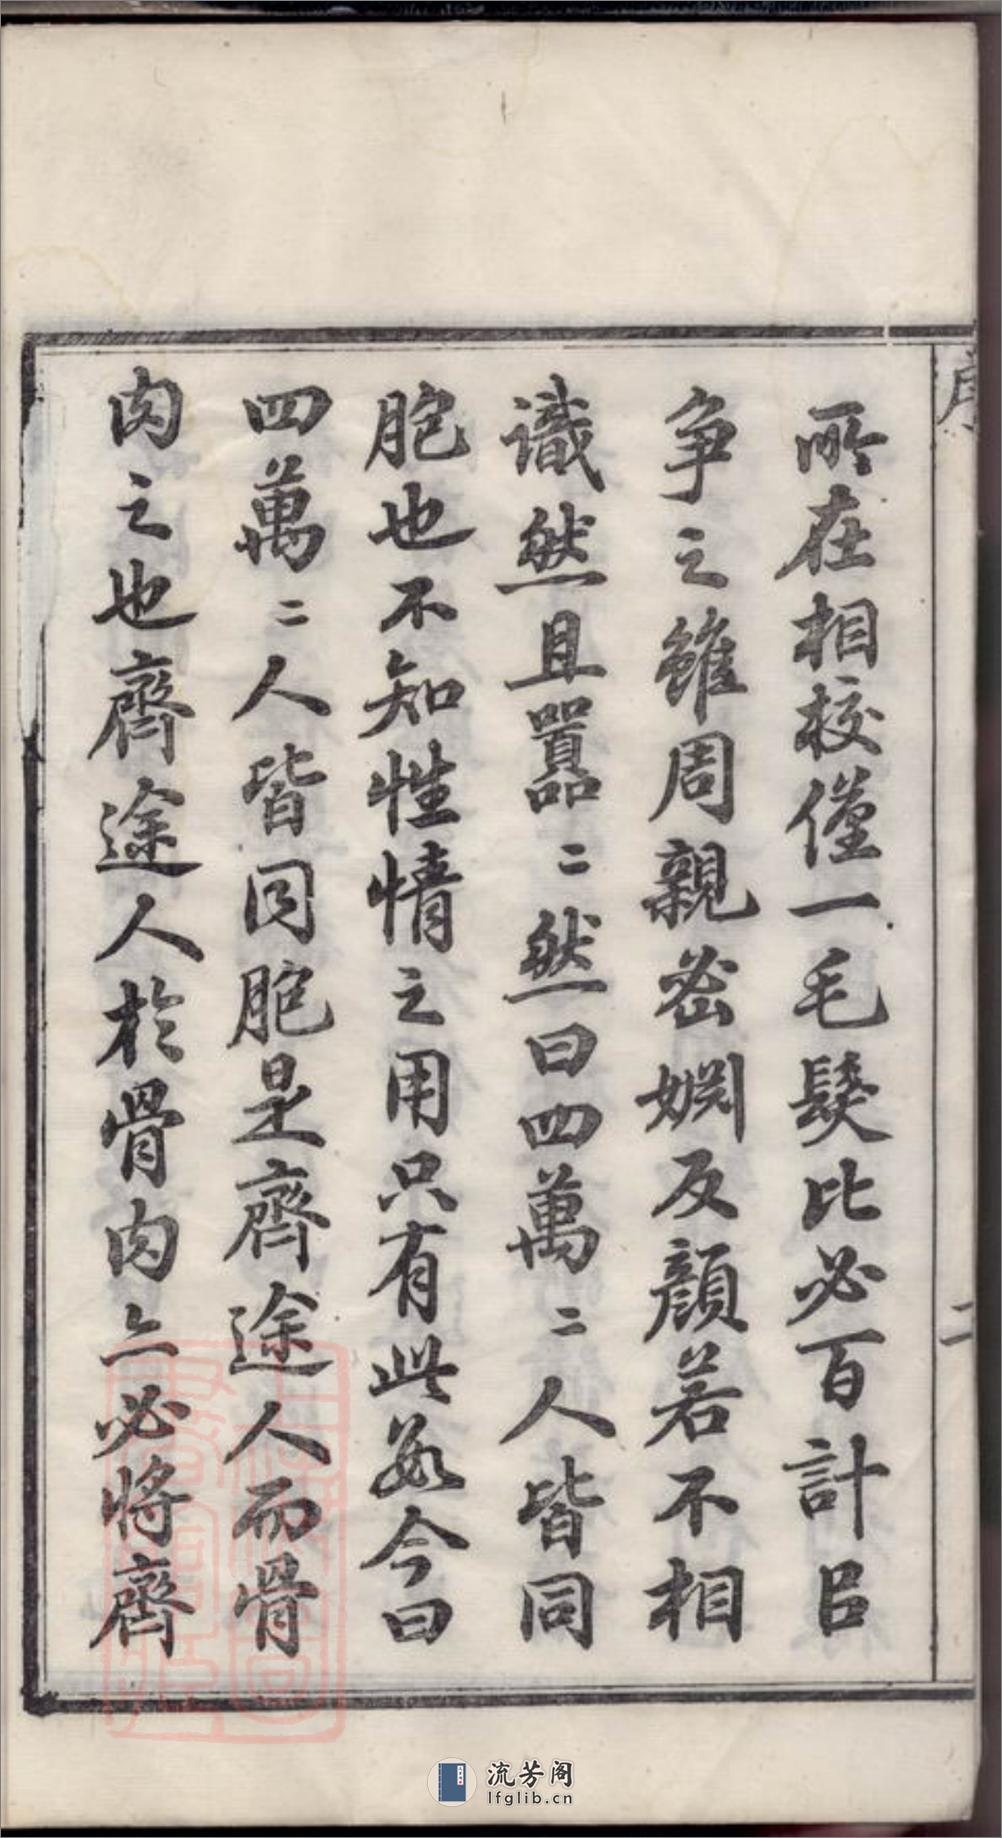 序
二
所在相校僅一毛髮比必百計㠯
爭之雖周親密嫻反顏若不相
識然且囂〻然曰四萬〻人皆同
胞也不知性情之用只有此數今曰
四萬〻人皆同胞是齊途人而骨
肉之也齊途人於骨肉亦必將齊
流芳阁
lfglib.cn